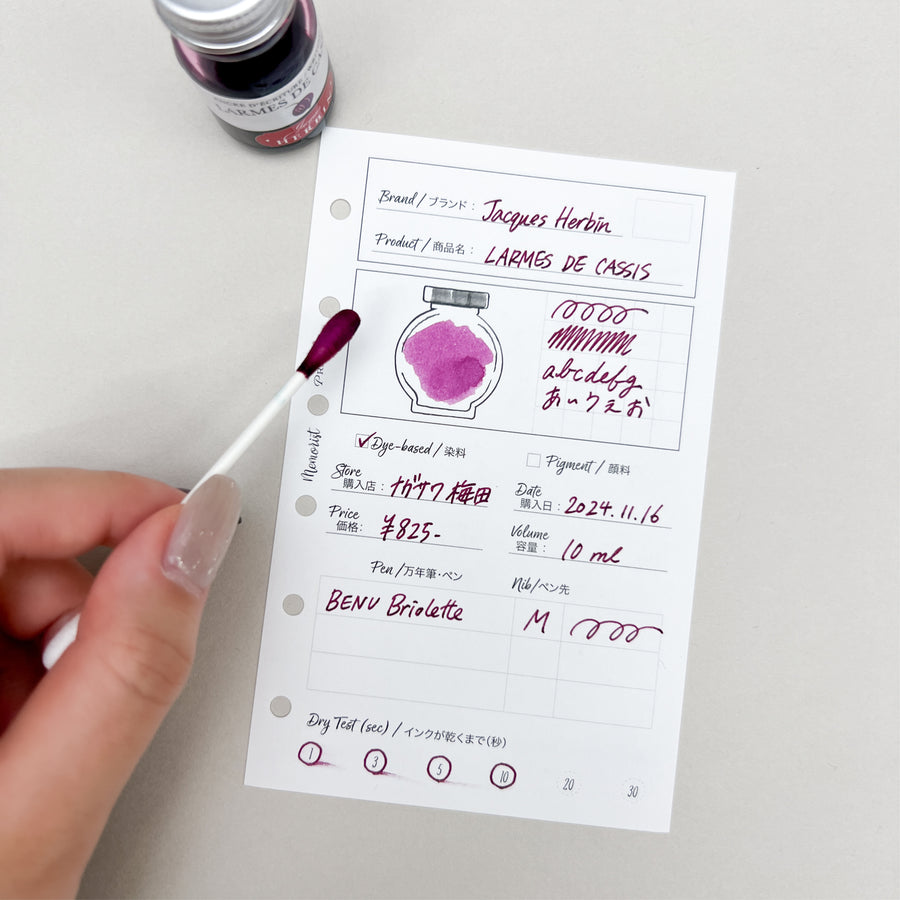 LARMES DE
HERBIN
Brand / ブランド : Jacques Herbin
Product / 商品名 : LARMES DE CASSIS
abcdefg
あいうえお
Memorist
Dye-based / 染料
Pigment / 顔料
Store
購入店 : ナガサワ 梅田
Date
購入日 : 2024.11.16
Price
価格: ¥825-
Volume
容量 : 10 ml
Pen / 万年筆・ペン
Nib/ペン先
BENU Briolette M
Dry Test (sec) / インクが乾くまで(秒)
1 3 5 10 20 30